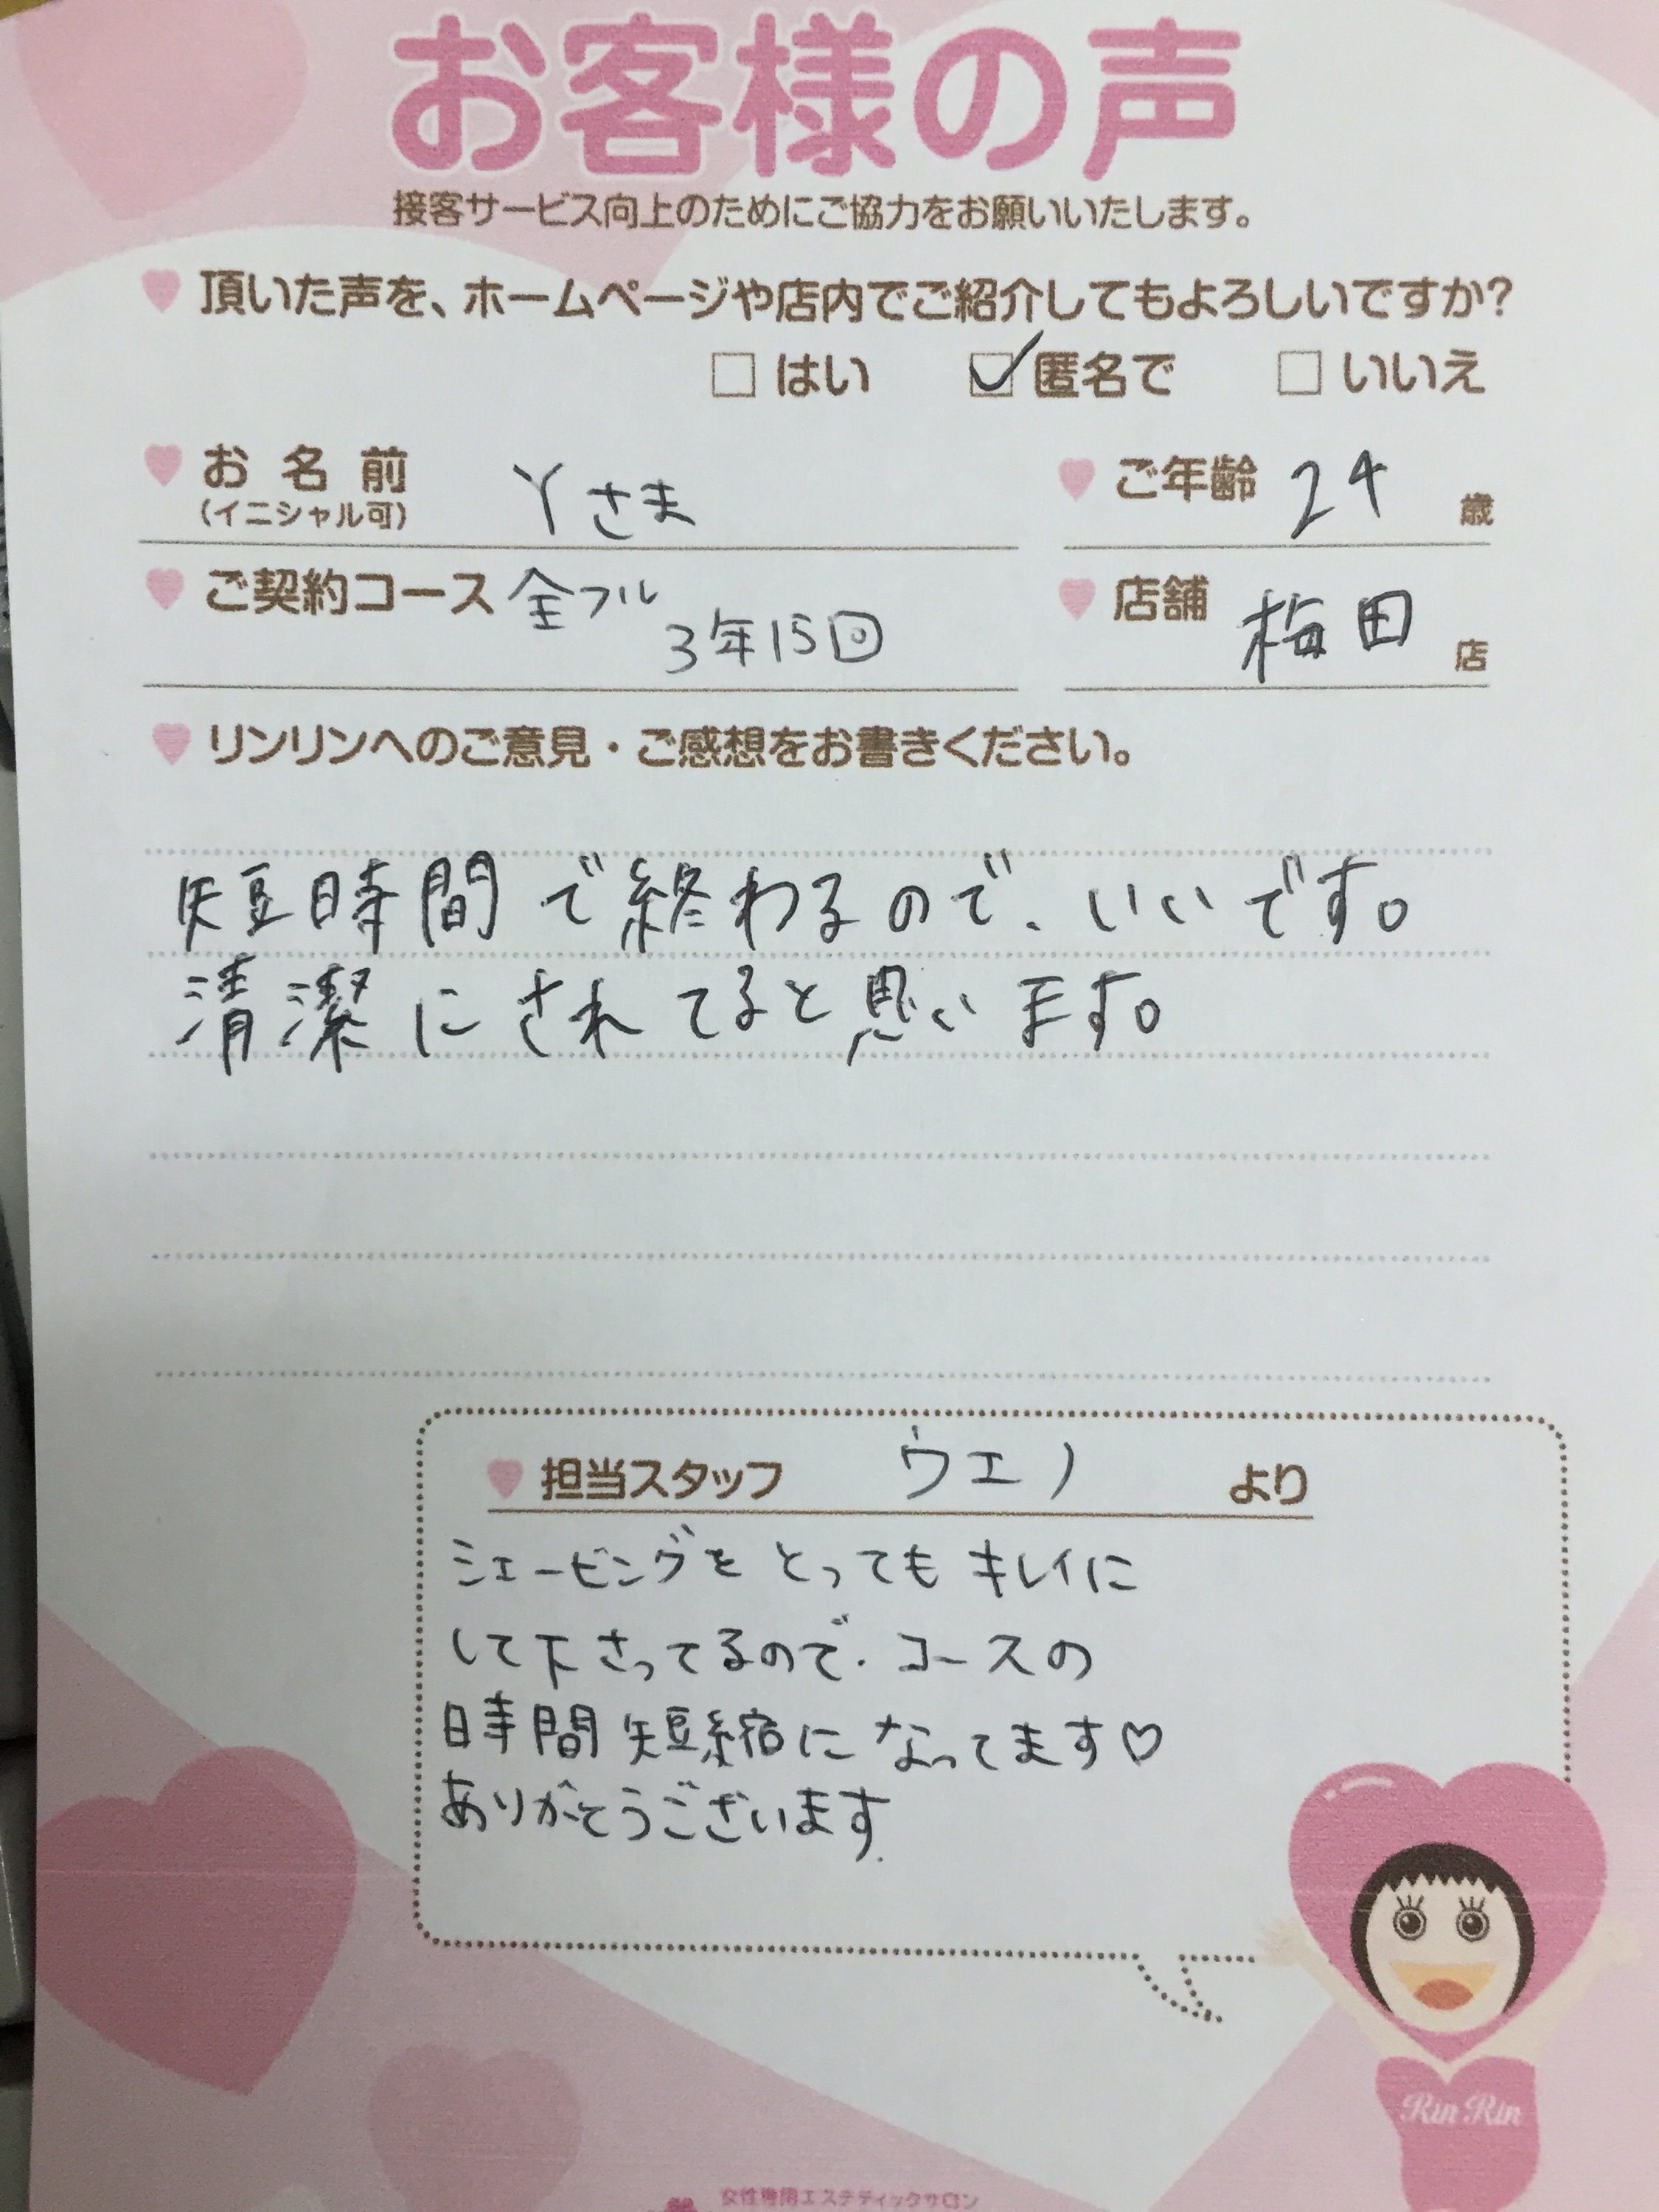 お客様の声
接客サービス向上のためにご協力をお願いいたします。
頂いた声を、ホームページや店内でご紹介してもよろしいですか?
はい 匿名で いいえ
お名前 Yさま ご年齢 24 歳
(イニシャル可)
ご契約コース 全フル 3年15回 店舗 梅田 店
リンリンへのご意見・ご感想をお書きください。
短時間で終わるので、いいです。
清潔にされてると思います。
担当スタッフ ウエノ より
シェービングをとってもキレイに
して下さってるので、コースの
時間短縮になってます♡
ありがとうございます.
Rin Rin
女性専用エステティックサロン